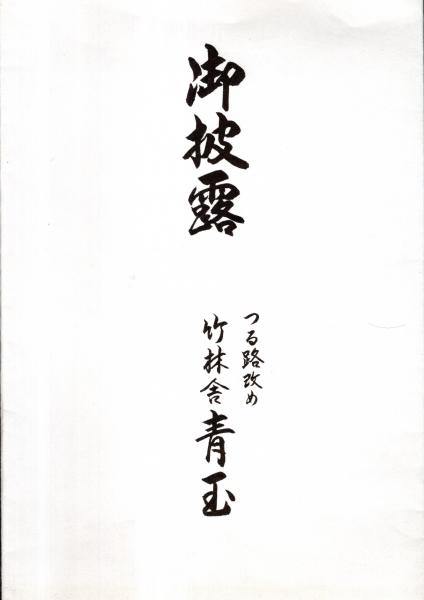 御披露
つる路改め
竹林舎青玉